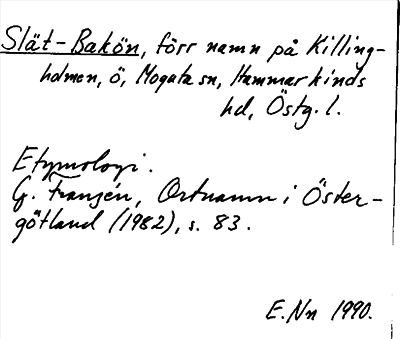 Slät-Bakön, förr namn på Killing-
holmen, ö, Mogata sn, Hammarkinds
hd, Östg. l.
Etymologi.
G. Franzén, Ortnamn i Öster-
götland (1982), s. 83.
E. Nn 1990.